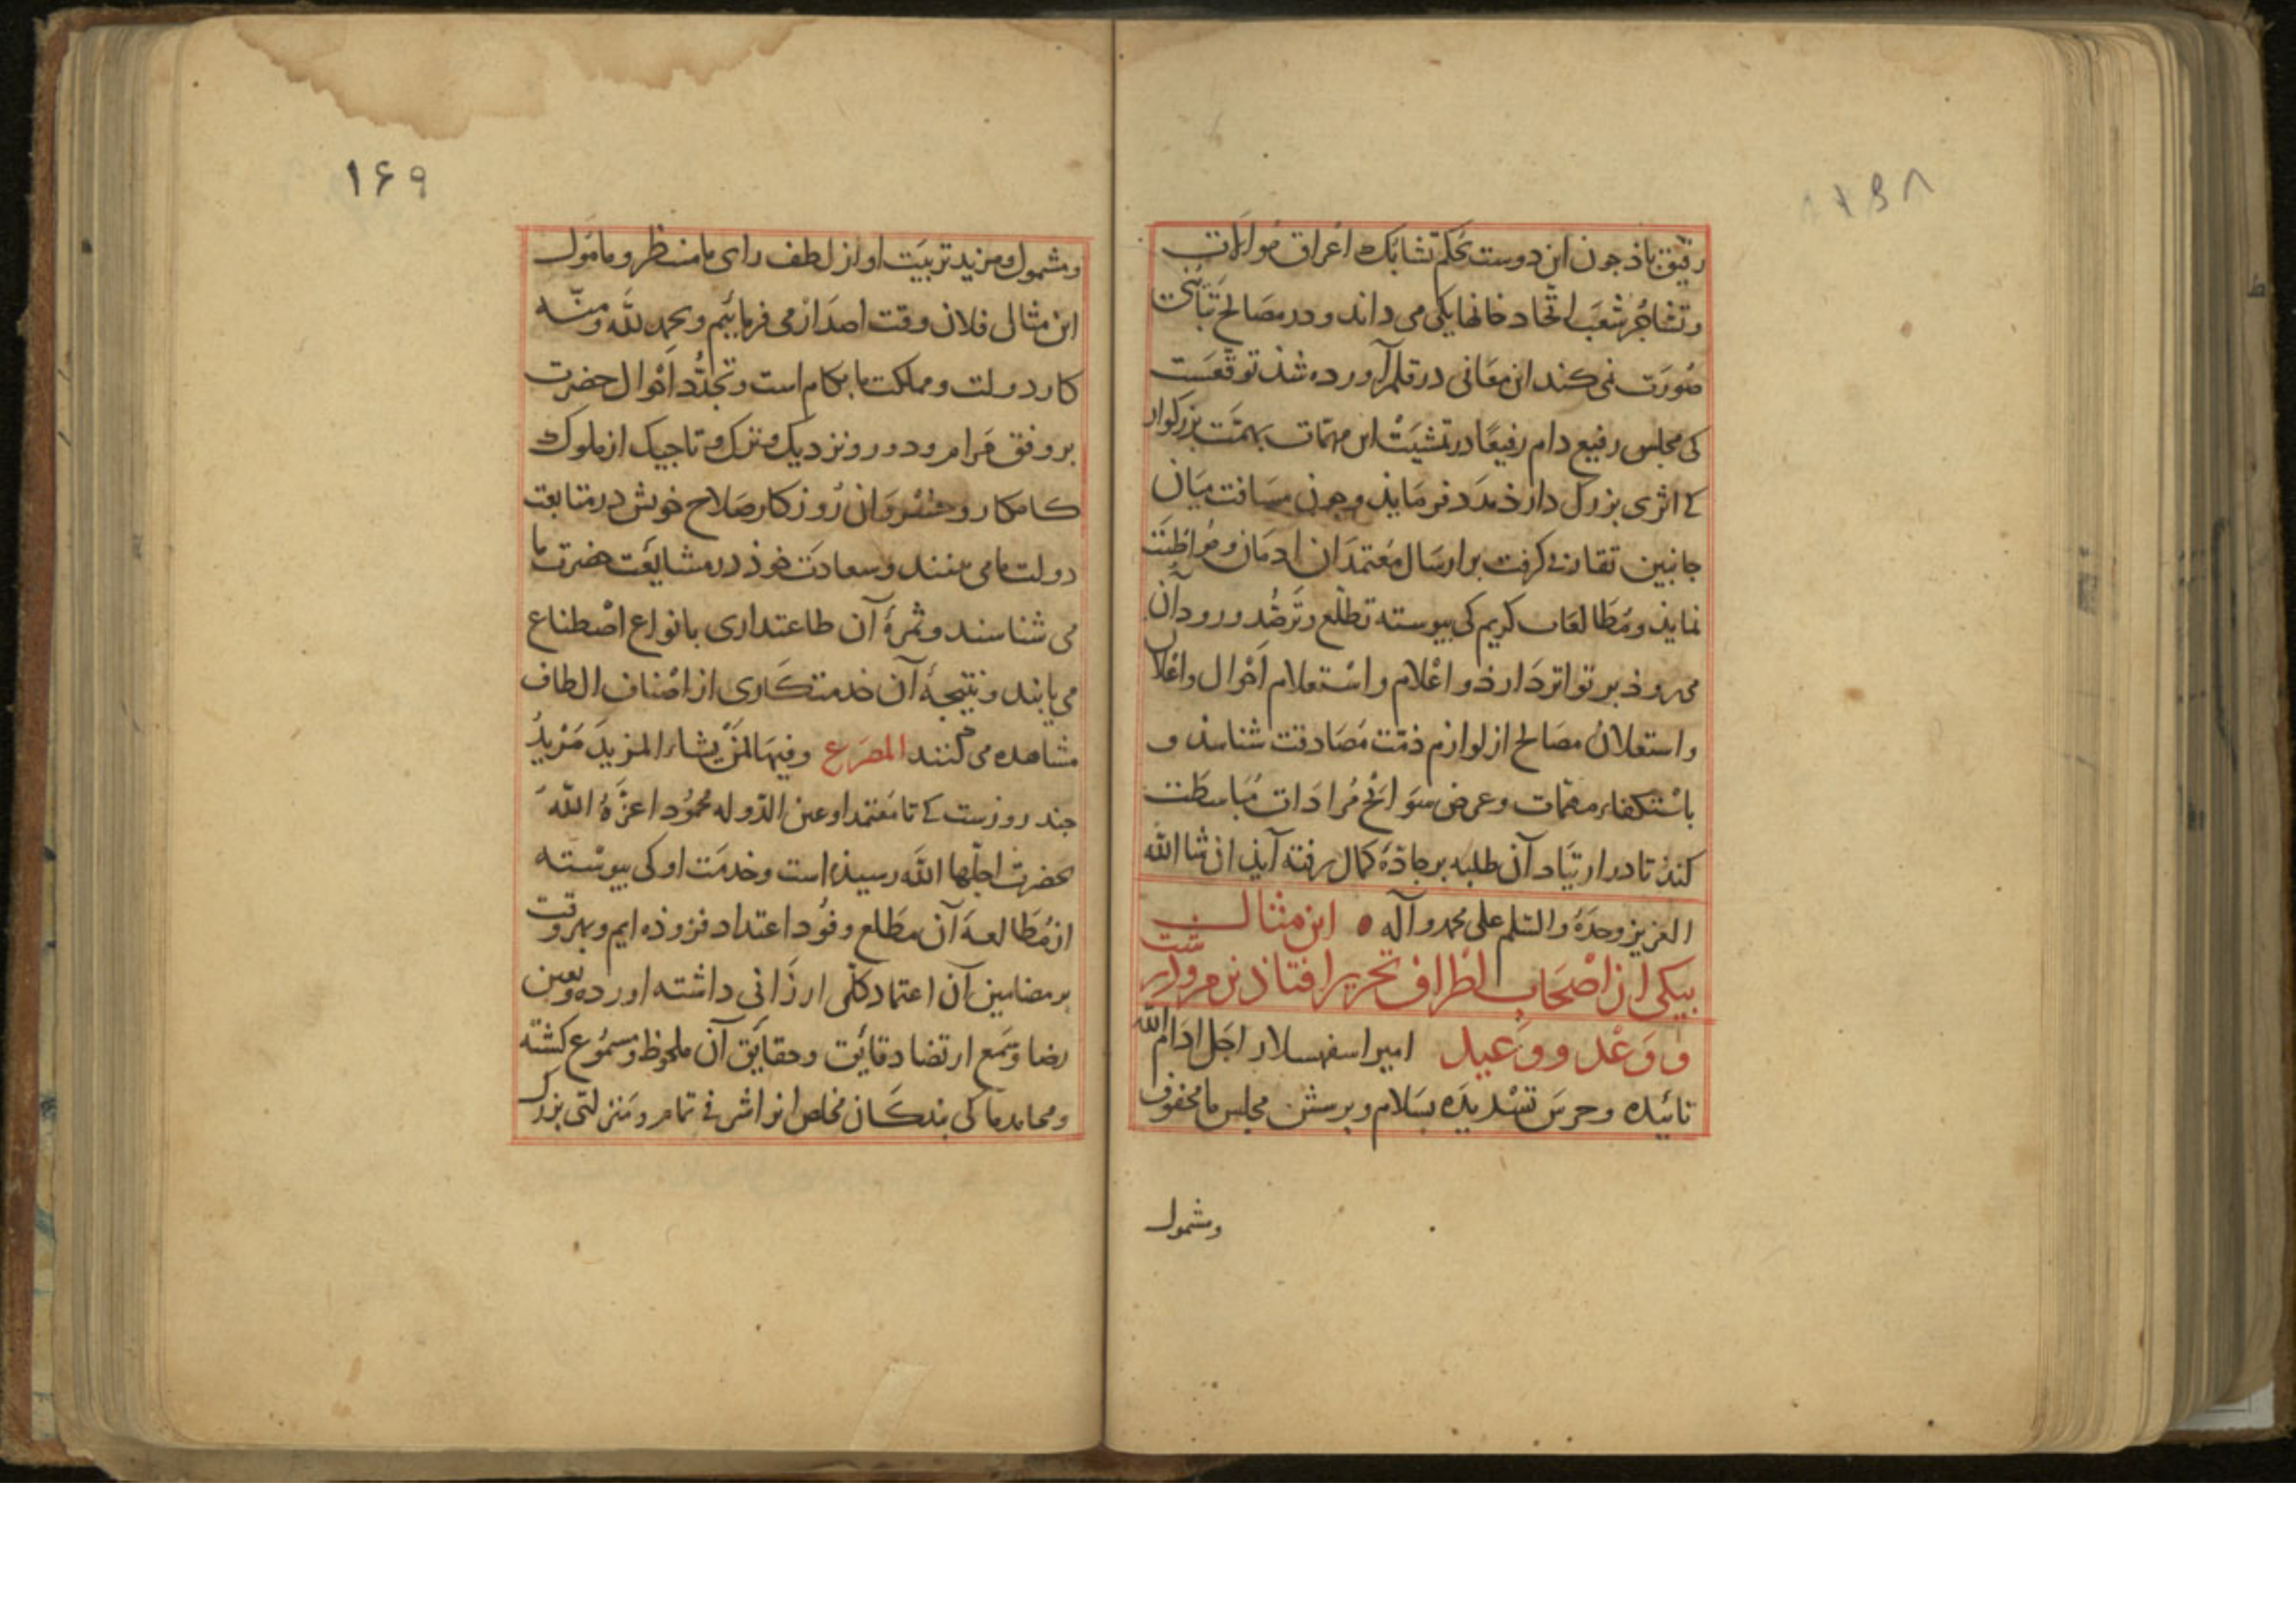 رفیق باذ جون این دوست بحکم تشابک اعراق موالات
وتشاجر شعب اتحاد خانها یکی می داند و در مصالح تبانی
صورت نمی کند این معانی در قلم آورده شذ توقعست
کی مجلس رفیع دام رفیعا در تمشیت این مهمات بهمت بزرکوار
کے اثری بزرک دارذ مدد فرمایذ وجون مسافت میان
جانبین تقارن کرفت بر ارسال معتمدان ادمان ومواظبت
نمایذ ومطالعات کریم کی بیوسته تطلع وترصد ورود آن
می روذ بر تواتر دارذ و اعلام واستعلام احوال واعلان
واستعلان مصالح از لوازم ذمت مصادقت شناسذ و
باستکفاء مهمات وعرض سوانح مرادات مباسطت
کند تا در ارتیاد آن طلبه بر جاذه کمال رفته آیذ ان شا الله
العزیز وحده والسلم علی محمد وآله این مثال
بیکی از اصحاب اطراف تحریر افتاذ
و وعد و وعید امیر اسفهسلار اجل ادام الله
تائیده وحرس تسدیده بسلام وبرسش مجلس ما محفوف
ومشمول
۱۶۹
ومشمول ومزید تربیت او از لطف رای ما منتظر ومامول
این مثال فلان وقت اصدار می فرمائیم وبحمد لله ومنه
کار دولت ومملکت ما بکام است وتجدد احوال حضرت
بر وفق مرام ودور ونزدیک وترک وتاجیک از ملوک
کامکار وخسروان روزکار صلاح خویش در متابعت
دولت ما می بینند وسعادت خوذ در مشایعت حضرت ما
می شناسند وثمره آن طاعتداری بانواع اصطناع
می یابند ونتیجه آن خدمتکاری از اصناف الطاف
مشاهده می کنند المصرع وفیها لمن یشاء المزید مزید
جند روزست کے تا معتمد او عین الدوله محمود اعزه الله
بحضرت اجلها الله رسیذه است وخدمت او کی بیوسته
از مطالعه آن مطلع وفود اعتداد فزوذه ایم وبهر وقت
بر مضامین آن اعتماد کلی ارزانی داشته اورده وبعین
رضا وسمع ارتضا دقائق وحقایق آن ملحوظ ومسموع کشته
ومحامد ما کی بندکان مخلص از اثر تمام ومنزلتی بزرک